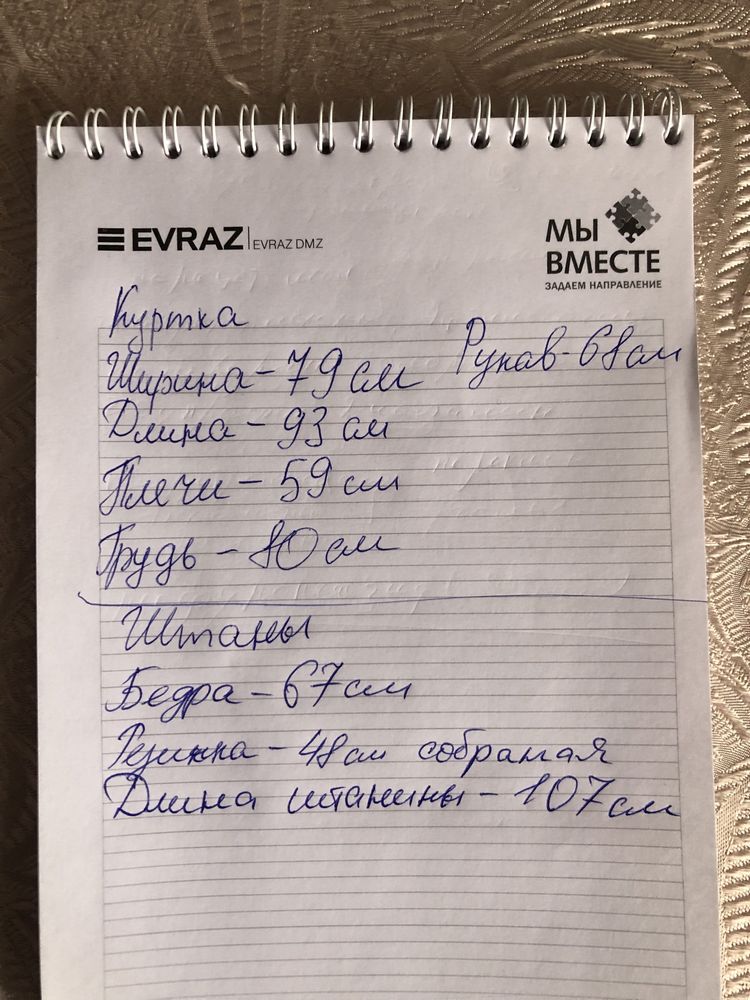 EVRAZ | EVRAZ DMZ
МЫ
ВМЕСТЕ
ЗАДАЕМ НАПРАВЛЕНИЕ
Куртка
Ширина - 79 см Рукав - 68 см
Длина - 93 см
Плечи - 59 см
Грудь - 80 см
Штаны
Бедра - 67 см
Резинка - 48 см собраная
Длина штанины - 107 см